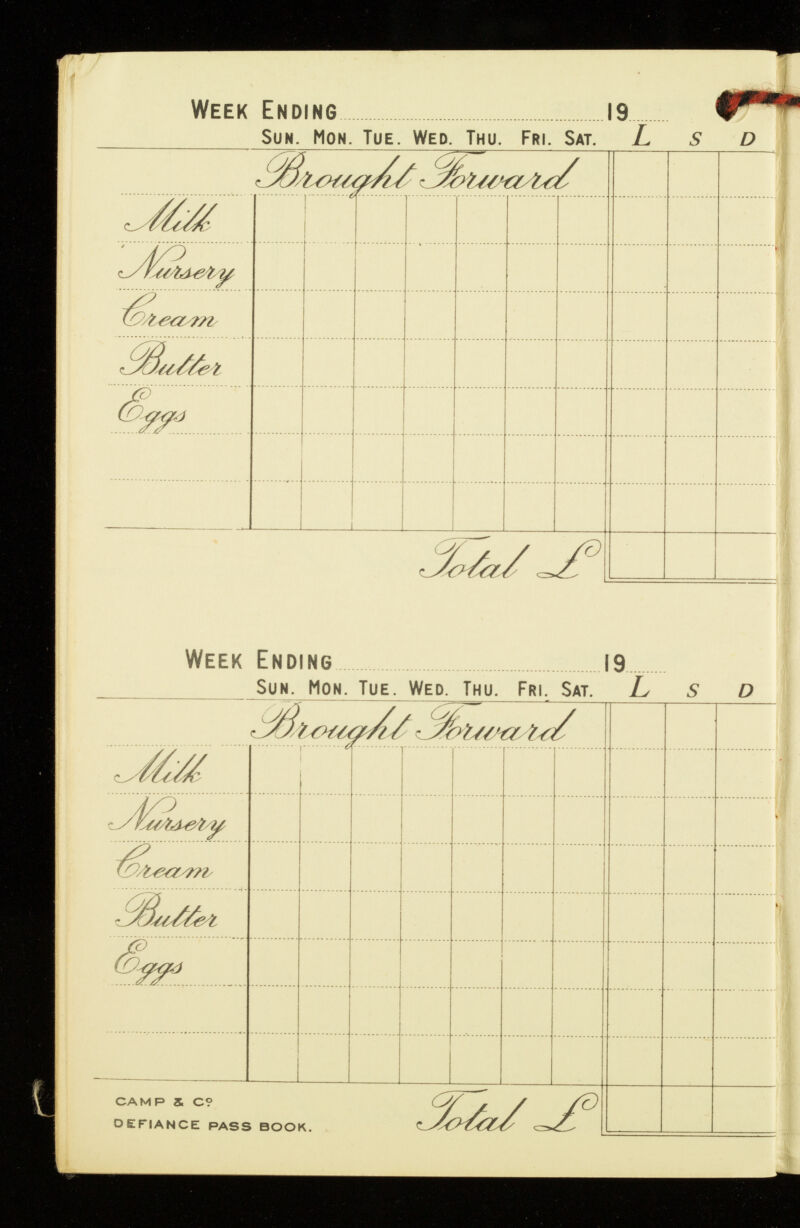 WEEK ENDING 19
SUN. MON. TUE. WED. THU. FRI. SAT. L S D
Brought Forward
Milk
Nursery
Cream
Butter
Eggs
Total £
WEEK ENDING 19
SUN. MON. TUE. WED. THU. FRI. SAT. L S D
Brought Forward
Milk
Nursery
Cream
Butter
Eggs
Total £
CAMP & Cº
DEFIANCE PASS BOOK.